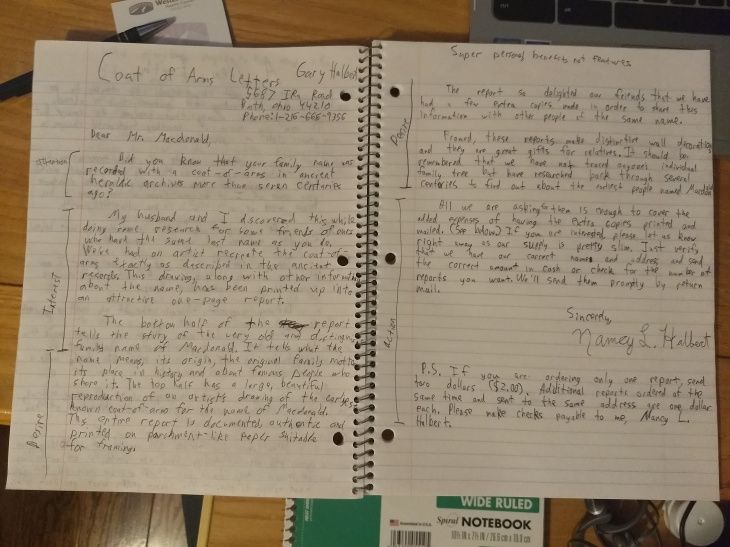 Coat of Arms Letters
Gary Halbert
5687 Ira Road
Bath, Ohio 44210
Phone: 1-216-666-9356
Dear Mr. Macdonald,
Attention
Did you know that your family name was
recorded with a coat-of-arms in ancient
heraldic archives more than seven centuries
ago?
Interest
My husband and I discovered this while
doing some research for some friends of ours
who have the same last name as you do.
We've had an artist recreate the coat-of-
arms exactly as described in the ancient
records. This drawing, along with other information
about the name, has been printed up into
an attractive one-page report.
The bottom half of the report
tells the story of the very old and
family name of Macdonald. It tells what the
name means, its origin, the original family motto,
its place in history and about famous people who
share it. The top half has a large, beautiful
reproduction of an artist's drawing of the earliest
known coat-of-arm for the name of Macdonald.
This entire report is documented, authentic and
printed on parchment-like paper suitable
for framing.
Desire
Super personal benefits not features
Desire
The report so delighted our friends that we have
had a few extra copies made in order to share this
information with other people of the same name.
Framed, these reports make distinctive wall decorations
and they are great gifts for relatives. It should be
remembered that we have not traced anyone's individual
family tree but have researched back through several
centuries to find out about the earliest people named Macdonald
Action
All we are asking them is enough to cover the
added expenses of having the extra copies printed and
mailed. (See below) If you are interested, please let us know
right away as our supply is pretty slim. Just verify
that we have our correct name and address and send
the correct amount in cash or check for the number of
reports you want. We'll send them promptly by return
mail.
Sincerely,
Nancy L. Halbert
P.S. If you are ordering only one report, send
two dollars ($2.00). Additional reports ordered at the
same time and sent to the same address are one dollar
each. Please make checks payable to me, Nancy L.
Halbert.
WIDE RULED
Spiral NOTEBOOK
10½ in x 7½ in / 26.6 x 19.0 cm